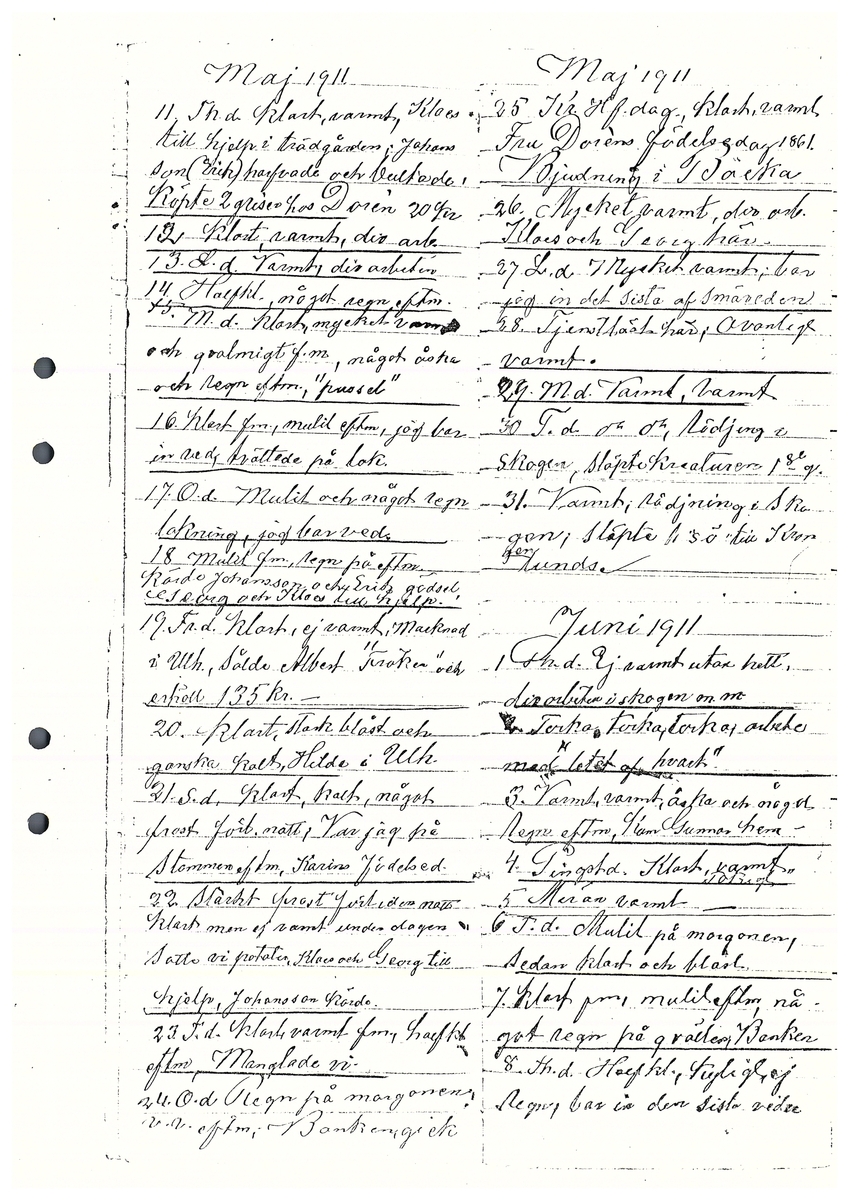 Maj 1911
11. Th.d. klart, varmt, Klaes
till hjelp i trädgården; Johans
son (Erik) harfvade och vultade.
Köpte 2 grisar hos Dorén 20 Kr
12. Klart, varmt, div arb.
13. L.d. Varmt, div arbeten
14 Halfkl., något regn eftm.
15. M.d. klart, mycket varmt
och qvalmigt f.m., något åska
och regn eftm., "pussel"
16. klart fm, mulit eftm, jag bar
in ved, tvättade på lok.
17. O.d. Mulit och något regn
lakning, jag bar ved.
18 Mulit fm, regn på eftm.
Körde Johansson och Erik gödsel,
Georg och Klaes till hjelp.
19. Fr.d. Klart, ej varmt, Macknad
i Ulh, Sålde Albert "Fröken" och
erhöll 135 kr. —
20. Klart, stark blåst och
ganska kalt, Hilda i Ulh.
21. S.d. Klart, kalt, något
frost förl. natt; Var jag på
Stommen eftm, Karins födelsed.
22 Stärkt frost förlidna natt
klart men ej varmt under dagen
Satte vi potatis, Klaes och Georg till
hjelp, Johansson körde.
23. T.d. Klart, varmt fm, halfkl
eftm, Manglade vi.
24. O.d Regn på morgonen,
eftm; Banken, gick
Maj 1911
25 Kr. Hf. dag, klart, varmt
Fru Doréns födelsedag 1861.
Bjudning i Bäcka
26. Mycket varmt, div arb.
Klaes och Georg här.
27 L.d. Mycket varmt; bar
jag in det sista af småveden
28. Tjenstlåt här; Ovanligt
varmt.
29. M.d. Varmt, varmt
30 T.d. rödjning i
skogen, släpte kreaturen 1sta g.
31. Varmt; rödjning i sko
gen; släpte till
lunds.
Juni 1911
1 Th.d. Ej varmt utan hett,
div arbeten i skogen m m
2. Torka, torka, torka, arbete
med "letet af hvart".
3. Varmt, varmt, åska och något
regn eftm, kom Gunnar hem —
4. Pingstd. Klart, varmt
5 varmt —
6 T.d. Mulit på morgonen,
sedan klart och blåst
7. Klart fm, mulit eftm, nå-
got regn på qvällen, Banken
8. Th.d. Halfkl., ej
regn, bar in den sista veden